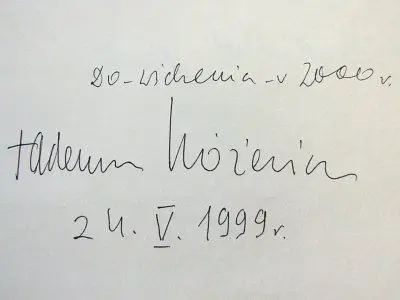 Do-widzenia-v 2000 r.
Tadeusz Różewicz
24. V. 1999 r.